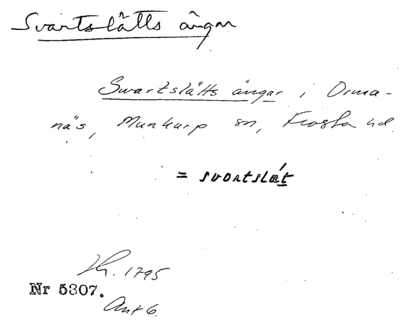 Svartslätts ängar
Swartslätts ängar i Orma-
näs, Munkarp sn, Frosta hd.
= svortslæt
Lh. 1795
Nr 5307.
Akt 6.